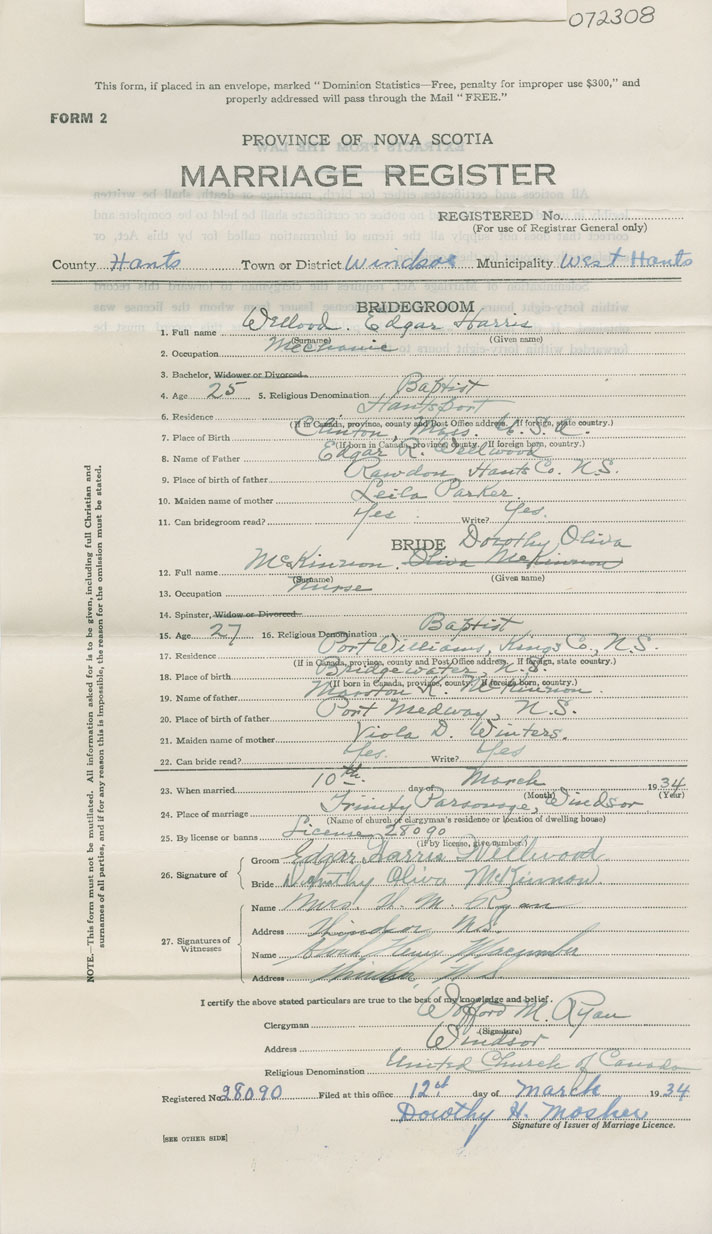 072308
This form, if placed in an envelope, marked "Dominion Statistics—Free, penalty for improper use $300," and
properly addressed will pass through the Mail "FREE."
FORM 2
PROVINCE OF NOVA SCOTIA
MARRIAGE REGISTER
REGISTERED No.
(For use of Registrar General only)
County Hants Town or District Windsor Municipality West Hants
BRIDEGROOM
1. Full name Wellood. Edgar Harris
(Surname) (Given name)
2. Occupation Mechanic
3. Bachelor, Widower or Divorced
4. Age 25 5. Religious Denomination Baptist
6. Residence Hantsport
(If in Canada, province, county and Post Office address. If foreign, state country.)
7. Place of Birth Clinton, Mass. U.S.A.
(If born in Canada, province, county. If foreign born, country.)
8. Name of Father Edgar R. Wellwood
9. Place of birth of father Rawdon Hants Co. N.S.
10. Maiden name of mother Leila Parker.
11. Can bridegroom read? Yes Write? Yes.
BRIDE Dorothy Oliva
12. Full name McKinnon. Oliva McKinnon
(Surname) (Given name)
13. Occupation Nurse
14. Spinster, Widow or Divorced
15. Age 27 16. Religious Denomination Baptist
17. Residence Port Williams, Kings Co., N.S.
(If in Canada, province, county and Post Office address. If foreign, state country.)
18. Place of Birth Bridgewater, N.S.
(If born in Canada, province, county. If foreign born, country.)
19. Name of father K. McKinnon.
20. Place of birth of father Port Medway, N.S.
21. Maiden name of mother Viola D. Winters.
22. Can bride read? Yes. Write? Yes
23. When married 10th. day of March 1934
(Month) (Year)
24. Place of marriage Trinity Parsonage, Windsor
(Name of church or clergyman's residence or location of dwelling house)
25. By license or banns License 28090
(If by license, give number.)
26. Signature of
Groom Edgar Harris Wellwood
Bride Dorothy Oliva McKinnon
27. Signatures of Witnesses
Name Mrs. W. M. Ryan
Address Windsor N.S.
Name
Address Windsor N.S.
I certify the above stated particulars are true to the best of my knowledge and belief.
Clergyman M. Ryan
(Signature)
Address Windsor
Religious Denomination United Church of Canada
Registered No. 28090 Filed at this office 12th day of March 1934
Dorothy H. Mosher
Signature of Issuer of Marriage Licence.
[SEE OTHER SIDE]
NOTE.—This form must not be mutilated. All information asked for is to be given, including full Christian and
surnames of all parties, and if for any reason this is impossible, the reason for the omission must be stated.